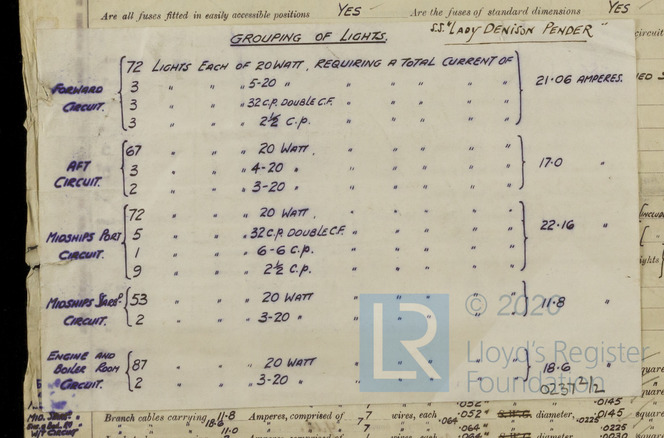 Are all fuses fitted in easily accessible positions YES Are the fuses of standard dimensions YES
GROUPING OF LIGHTS. S.S. "LADY DENISON PENDER"
FORWARD CIRCUIT.
72 LIGHTS EACH OF 20 WATT, REQUIRING A TOTAL CURRENT OF
3 " " " 5-20 " " " " "
3 " " " 32 C.P. DOUBLE C.F. " " " "
3 " " " 2½ C.P. " " " "
21.06 AMPERES.
AFT CIRCUIT.
67 " " " 20 WATT, " " " "
3 " " " 4-20 " " " " "
2 " " " 3-20 " " " " "
17.0 "
MIDSHIPS PORT CIRCUIT.
72 " " " 20 WATT, " " " "
5 " " " 32 C.P. DOUBLE C.F. " " " "
1 " " " 6-6 C.P. " " " "
9 " " " 2½ C.P. " " " "
22.16 "
MIDSHIPS STARBD CIRCUIT.
53 " " " 20 WATT " " " "
2 " " " 3-20 " " " " "
11.8 "
ENGINE AND BOILER ROOM CIRCUIT.
87 " " " 20 WATT " " " "
2 " " " 3-20 " " " " "
18.6 "
LR © 2020
Lloyd's Register
Foundation
0237 2/2
.052 " " .0145
Branch cables carrying 11.8 Amperes, comprised of 7 wires, each .052 " S.W.G. diameter, .0145 square
18.6 7 .064 .0225
11.0 7 .064 " .0225